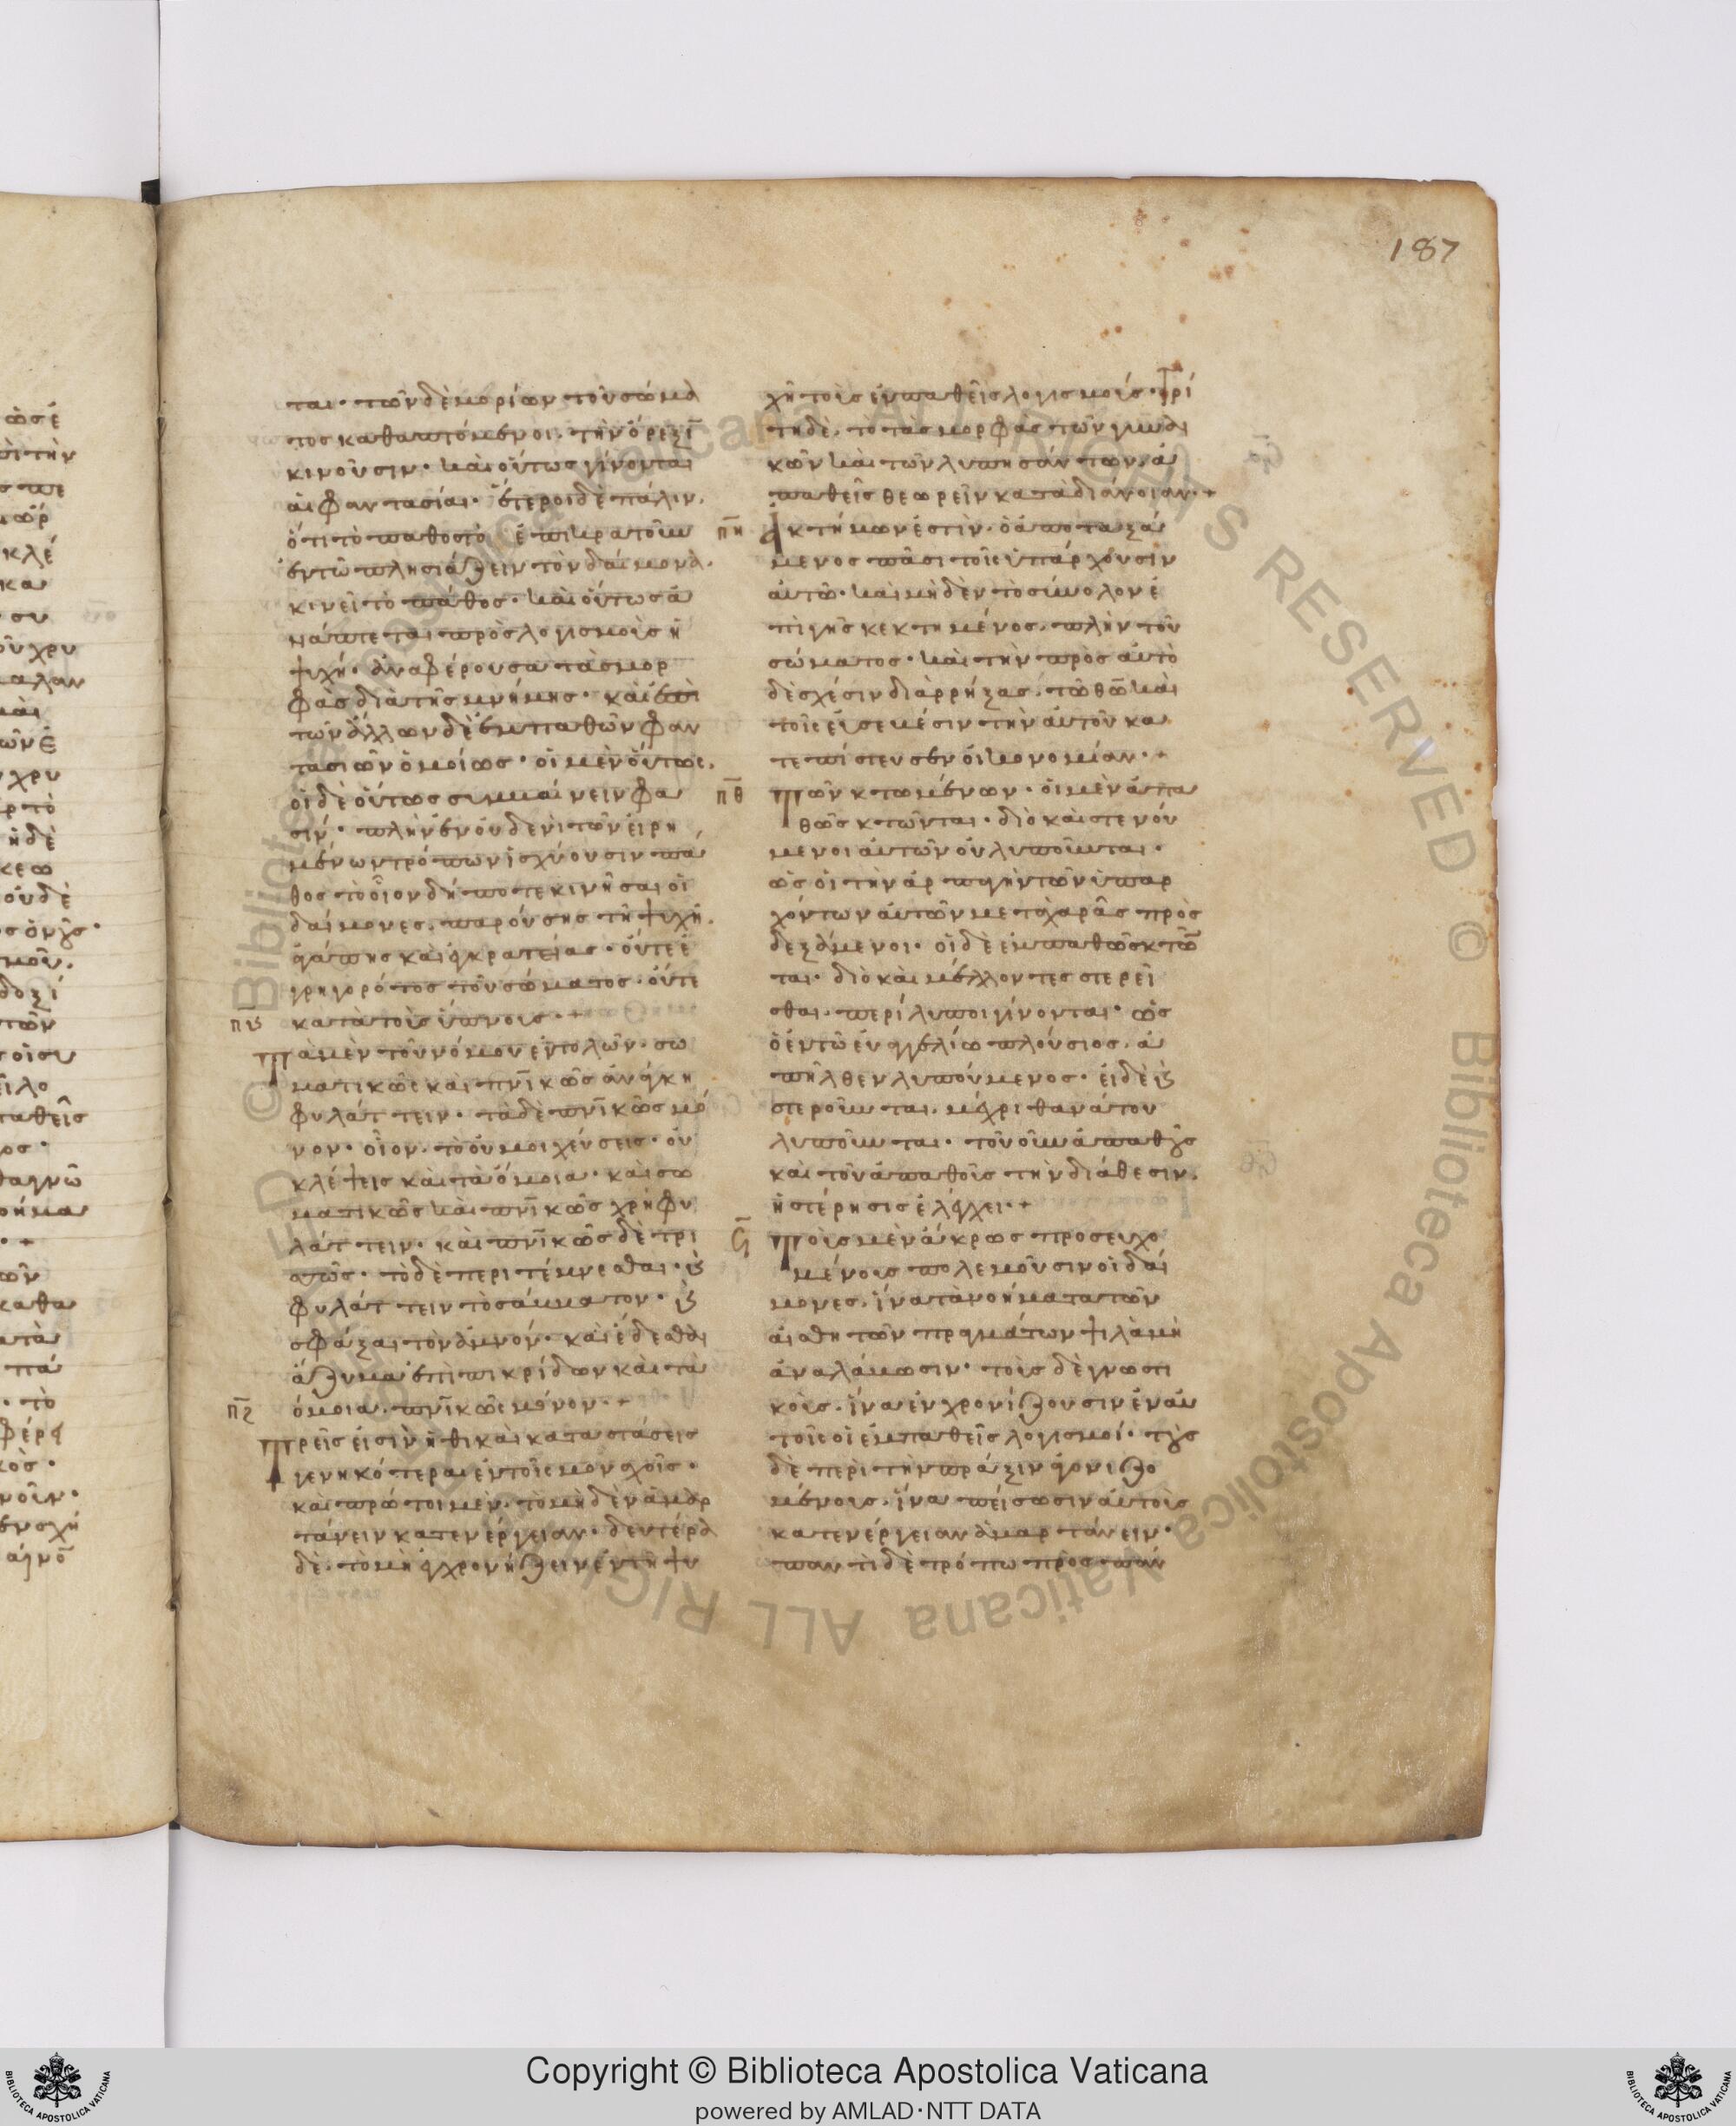 187
ται· τῶν δὲ μορίων τοῦ σώμα
τος καθαπτόμενοι, τὴν ὄρεξῑ
κινοῦσιν· καὶ οὕτως γίνονται
αἱ φαντασίαι· ἕτεροι δὲ πάλιν,
ὅτι τὸ πάθος τὸ ἐπικρατοῦν
ἐν τῶ πλησιάζειν τὸν δαίμονα,
κινεῖ τὸ πάθος· καὶ οὕτως ἀ
νάπτεται πρὸς λογισμοὺς ἡ
ψυχή· ἀναφέρουσα τὰς μορ
φὰς διὰ τῆς μνήμης· καὶ ἐπὶ
τῶν ἄλλων δὲ ἐμπαθῶν φαν
τασιῶν ὁμοίως· οἱ μὲν οὕτως,
οἱ δὲ οὕτως συμμαίνειν φα
σίν· πλὴν ἐν οὐδενὶ τῶν εἰρη
μένων τρόπων ἰσχύουσιν πά
θος τὸ οἷον δήποτε κινῆσαι οἱ
δαίμονες, παρούσης τῆ ψυχῆ,
ἀγάπης καὶ ἐγκρατείας· οὔτε ἐ
γρηγορότος τοῦ σώματος, οὔτε
κατὰ τοὺς ὕπνους·+
π̅ϛ̅
Τὰ μὲν τοῦ νόμου ἐντολῶν, σω
ματικῶς καὶ πν̅ικῶς ἀνάγκη
φυλάττειν· τὰ δὲ πν̅ικῶς μό
νον· οἷον, τὸ οὐ μοιχεύσεις· οὐ
κλέψεις καὶ τὰ ὅμοια· καὶ σω
ματικῶς καὶ πν̅ικῶς χρὴ φυ
λάττειν· καὶ πν̅ικῶς δὲ τρι
σσῶς· τὸ δὲ περιτέμνεσθαι· καὶ
φυλάττειν τὸ σάββατον· καὶ
σφάξαι τὸν ἀμνόν· καὶ ἐδέσθαι
ἄζυμα ἐπὶ πικρίδων καὶ τὰ
ὅμοια, πν̅ικῶς μόνον·+
π̅ζ̅
Τρεῖς εἰσὶν ἠθικαὶ καταστάσεις
γενηκότεραι ἐν τοῖς μοναχοῖς·
καὶ πρώτοι μὲν, τὸ μηδὲν ἁμαρ
τάνειν κατ' ἐνέργειαν· δευτέρα
δὲ, τὸ μὴ ἐγχρονήζειν ἐν τῆ ψυ
χῆ τοὺς ἐμπαθεῖς λογισμούς· τρί
τη δὲ, τὸ τὰς μορφὰς τῶν γυναι
κῶν καὶ τῶν λυπησάντων, ἀ
παθεῖς θεωρεῖν κατὰ διάνοιαν·+
π̅η̅
Ἀκτήμων ἐστὶν, ὁ ἀποταξά
μενος πᾶσι τοῖς ὑπάρχουσιν
αὐτῶ· καὶ μηδὲν τὸ σύνολον ἐ
πὶ γῆς κεκτημένος, πλὴν τοῦ
σώματος· καὶ τὴν πρὸς αὐτὸ
δὲ σχέσιν διαρρήξας, τῶ θ̅ω̅ καὶ
τοῖς εὐσεβέσιν τὴν αὐτοῦ κα
τεπίστευσεν οἰκονομίαν·+
π̅θ̅
Τῶν κτωμένων, οἱ μὲν ἀπα
θῶς κτῶνται· διὸ καὶ στενού
μενοι αὐτῶν οὐ λυποῦνται·
ὡς οἱ τὴν ἁρπαγὴν τῶν ὑπαρ
χόντων αὐτῶν μετὰ χαρᾶς προσ
δεξάμενοι· οἱ δὲ ἐμπαθῶς κτῶ̅
ται· διὸ καὶ μέλλοντες στερεῖ
σθαι, περίλυποι γίνονται· ὡς
ὁ ἐν τῶ εὐαγγελίω πλούσιος, ἀ
πῆλθεν λυπούμενος· εἰ δὲ καὶ
στεροῦνται, μέχρι θανάτου
λυποῦνται· τοῦ οὖν ἀπαθοῦς
καὶ τοῦ ἀπαθοῦς τὴν διάθεσιν,
ἡ στέρησις ἐλέγχει·+
Ϟ̅
Τοὺς μὲν ἄκρως προσευχο
μένους πολεμοῦσιν οἱ δαί
μονες, ἵνα τὰ νοήματα τῶν
αἰσθητῶν πραγμάτων ψιλὰ μὴ
ἀναλάβωσιν· τοὺς δὲ γνωστι
κοὺς, ἵνα ἐνχρονίζουσιν ἐν αὐ
τοῖς οἱ ἐμπαθεῖς λογισμοί· τοὺς
δὲ περὶ τὴν πρᾶξιν ἀγωνιζο
μένους, ἵνα πείσωσιν αὐτοὺς
κατ' ἐνέργειαν ἁμαρτάνειν·
παντὶ δὲ τρόπω πρὸς πάν
Copyright © Biblioteca Apostolica Vaticana
powered by AMLAD·NTT DATA